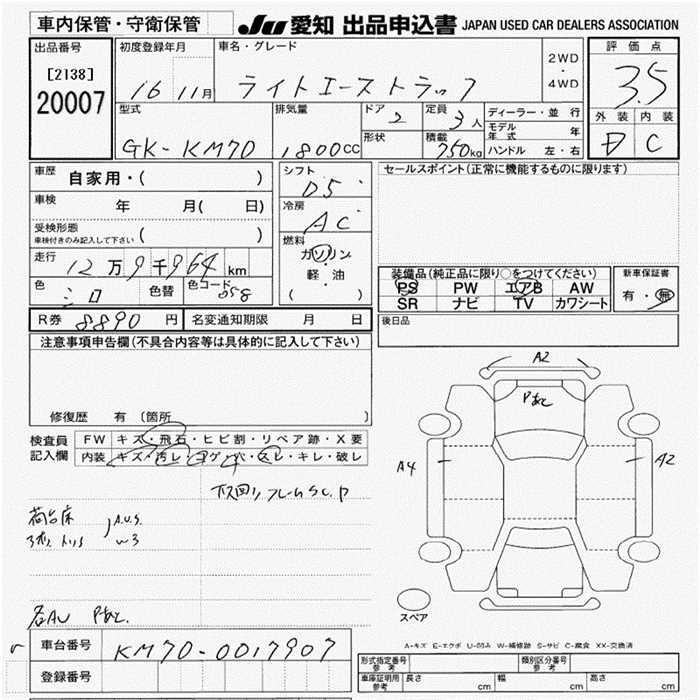 車内保管・守衛保管
JU 愛知 出品申込書 JAPAN USED CAR DEALERS ASSOCIATION
出品番号
[2138]
20007
初度登録年月
16 11月
車名・グレード
ライトエーストラック
2WD
・
4WD
評価点
3.5
外装 内装
D C
型式
GK-KM70
排気量
1800CC
ドア 2
形状
定員 3人
積載 750kg
ディーラー・並行
モデル年式 年
ハンドル 左・右
車歴 自家用・( )
車検 年 月( 日)
受検形態
車検付きのみ記入して下さい ( )
走行 12万9千964km
色 シロ 色替 色コード 058
シフト D5
冷房 AC
燃料
ガソリン
・
軽・油
( )
セールスポイント(正常に機能するものに限ります)
装備品(純正品に限り○をつけてください)
PS PW エアB AW
SR ナビ TV カワシート
新車保証書
有・無
R券 8890円 名変通知期限 月 日
後日品
注意事項申告欄(不具合内容等は具体的に記入して下さい)
修復歴 有〔箇所 〕
検査員記入欄
FW キズ・飛石・ヒビ割・リペア跡・X要
内装 キズ・汚レ・コゲ・穴・スレ・キレ・破レ
下回りフレームSC.P
荷台床
A.U.S.
W3
各AU Pあと.
A2
Pあと
A4
A2
スペア
A-キズ E-エクボ U-凹み W-補修跡 S-サビ C-腐食 XX-交換済
車台番号 KM70-0017907
登録番号
形式指定番号参考 類別区分番号参考
車庫証明用参考 長さ cm 幅 cm 高さ cm